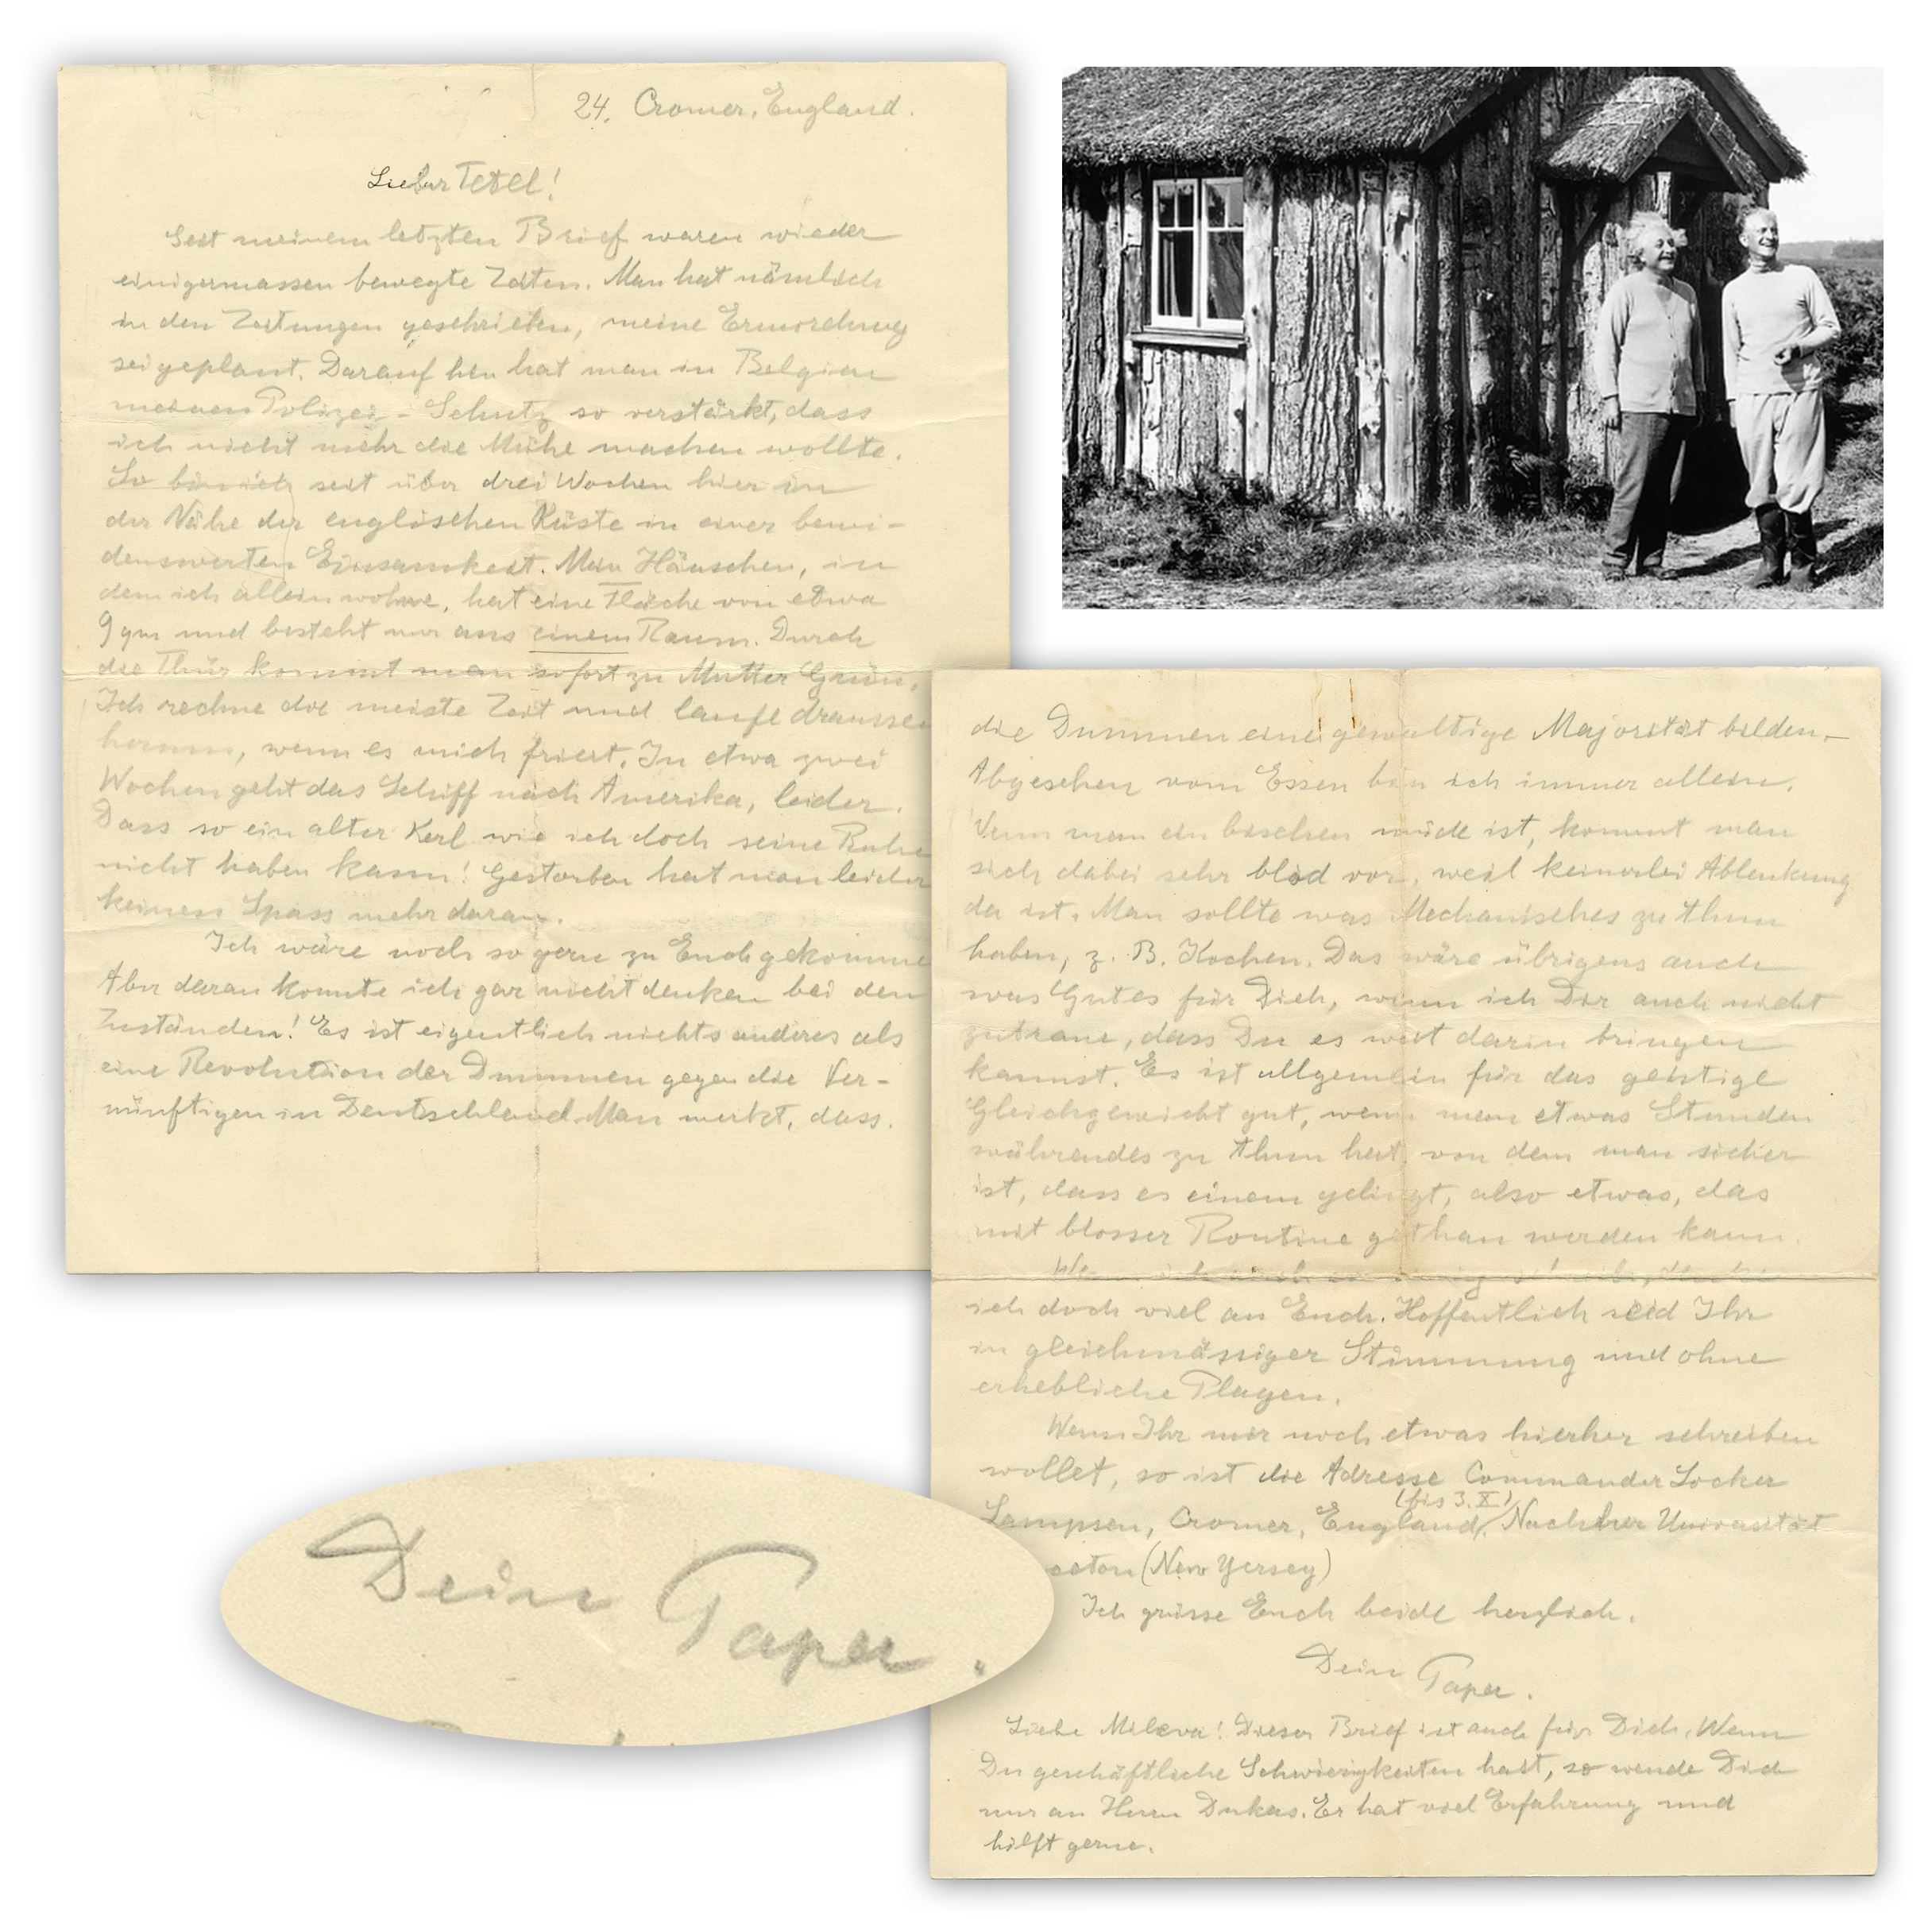 24. Cromer, England.
Lieber Tetel!
Seit meinem letzten Brief waren wieder
einigermassen bewegte Zeiten. Man hat nämlich
in den Zeitungen geschrieben, meine Ermordung
sei geplant. Darauf hin hat man in Belgien
meinen Polizei-Schutz so verstärkt, dass
ich nicht mehr die Mühe machen wollte.
So bin ich seit über drei Wochen hier in
der Nähe der englischen Küste in einer benei-
denswerten Einsamkeit. Mein Häuschen, in
dem ich allein wohne, hat eine Fläche von etwa
9 qm und besteht nur aus einem Raum. Durch
die Thür kommt man sofort zu Mutter Grün.
Ich rechne die meiste Zeit und laufe draussen
herum, wenn es mich friert. In etwa zwei
Wochen geht das Schiff nach Amerika, leider.
Dass so ein alter Kerl wie ich doch seine Ruhe
nicht haben kann! Gestorben hat man leider
keinen Spass mehr daran.
Ich wäre noch so gern zu Euch gekomme
Aber daran konnte ich gar nicht denken bei den
Zuständen! Es ist eigentlich nichts anderes als
eine Revolution der Dummen gegen die Ver-
nünftigen in Deutschland. Man merkt, dass
die Dummen eine gewaltige Majorität bilden.—
Abgesehen vom Essen bin ich immer allein.
Wenn man ein bischen müde ist, kommt man
sich dabei sehr blöd vor, weil keinerlei Ablenkung
da ist. Man sollte was Mechanisches zu thun
haben, z. B. Kochen. Das wäre übrigens auch
was Gutes für Dich, wenn ich Dir auch nicht
zutraue, dass Du es weit darin bringen
kannst. Es ist allgemein für das geistige
Gleichgewicht gut, wenn man etwas Stunden
währendes zu thun hat, von dem man sicher
ist, dass es einem gelingt, also etwas, das
mit blosser Routine gethan werden kann.
ich doch viel an Euch. Hoffentlich seid Ihr
in gleichmässiger Stimmung und ohne
erhebliche Plagen.
Wenn Ihr mir noch etwas hierher schreiben
wollet, so ist die Adresse Commander Locker
Lampsen, Cromer, England (bis 3. X). Nachher Universität
ceton (New Yersey)
Ich grüsse Euch beide herzlich.
Dein Papa.
Liebe Mileva! Dieser Brief ist auch für Dich. Wenn
Du geschäftliche Schwierigkeiten hast, so wende Dich
nur an Herrn Dukas. Er hat viel Erfahrung und
hilft gerne.
Dein Papa.